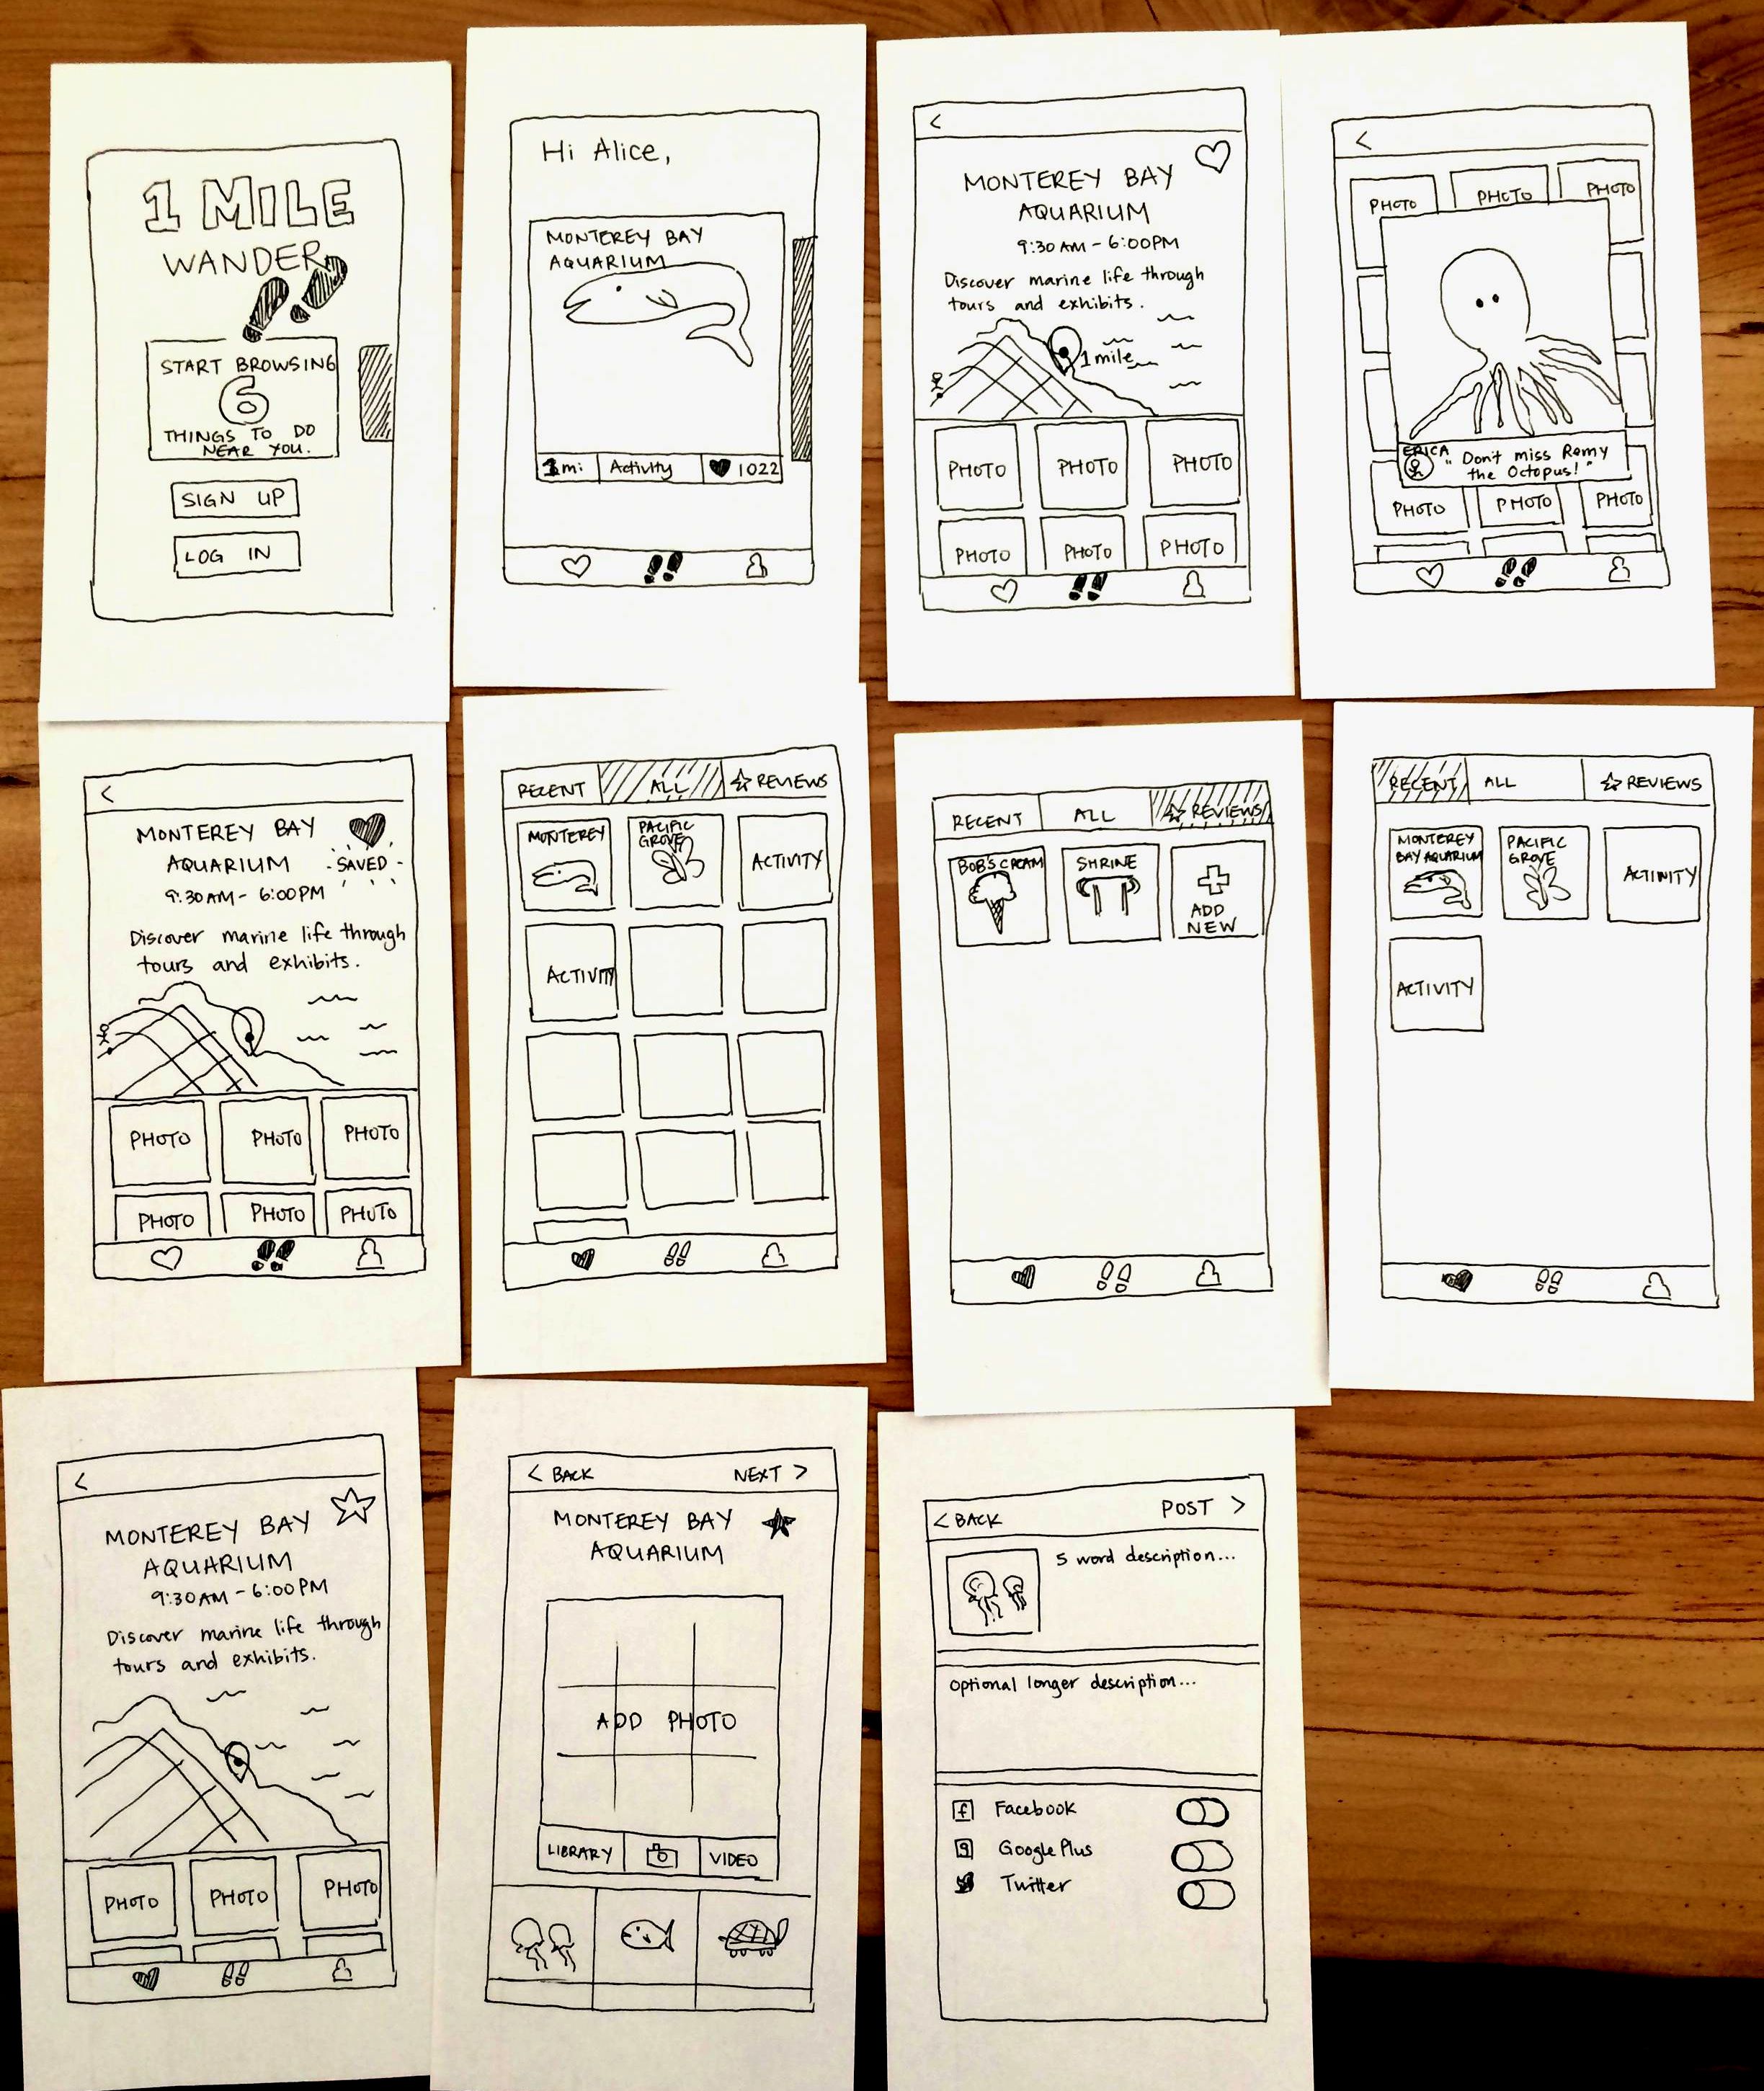 1 MILE
WANDER
START BROWSING
6
THINGS TO DO
NEAR YOU.
SIGN UP
LOG IN
Hi Alice,
MONTEREY BAY
AQUARIUM
1mi Activity 1022
<
MONTEREY BAY
AQUARIUM
9:30AM - 6:00PM
Discover marine life through
tours and exhibits.
1 mile
PHOTO PHOTO PHOTO
PHOTO PHOTO PHOTO
<
PHOTO PHOTO PHOTO
ERICA
"Don't miss Remy
the Octopus!"
PHOTO PHOTO PHOTO
<
MONTEREY BAY
AQUARIUM - SAVED -
9:30AM - 6:00PM
Discover marine life through
tours and exhibits.
PHOTO PHOTO PHOTO
PHOTO PHOTO PHOTO
RECENT ALL REVIEWS
MONTEREY PACIFIC
GROVE
ACTIVITY
ACTIVITY
RECENT ALL REVIEWS
BOB'S CREAM SHRINE
ADD
NEW
RECENT ALL REVIEWS
MONTEREY PACIFIC
BAY AQUARIUM GROVE
ACTIVITY
ACTIVITY
<
MONTEREY BAY
AQUARIUM
9:30AM - 6:00PM
Discover marine life through
tours and exhibits.
PHOTO PHOTO PHOTO
< BACK NEXT >
MONTEREY BAY
AQUARIUM
ADD PHOTO
LIBRARY VIDEO
< BACK POST >
5 word description...
optional longer description...
f Facebook
g Google Plus
Twitter